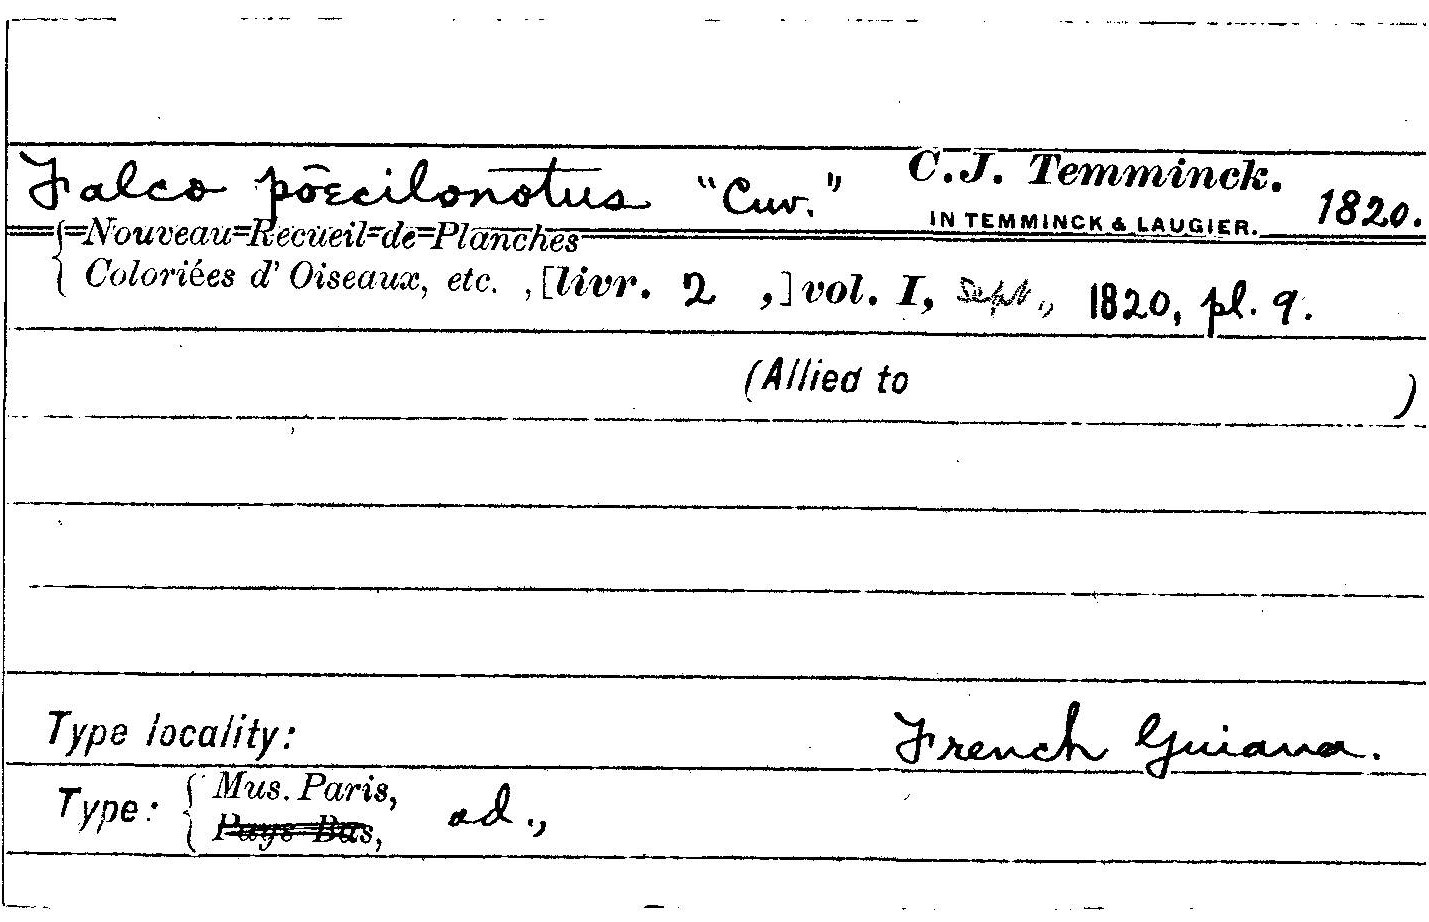 Falco pœcilonotus "Cuv." C.J. Temminck. 1820.
IN TEMMINCK & LAUGIER.
Nouveau Recueil de Planches
Coloriées d' Oiseaux, etc. , [livr. 2 ,] vol. I, Sept., 1820, pl. 9.
(Allied to )
Type locality: French Guiana.
Type: Mus. Paris, ad.,
Pays Bas,